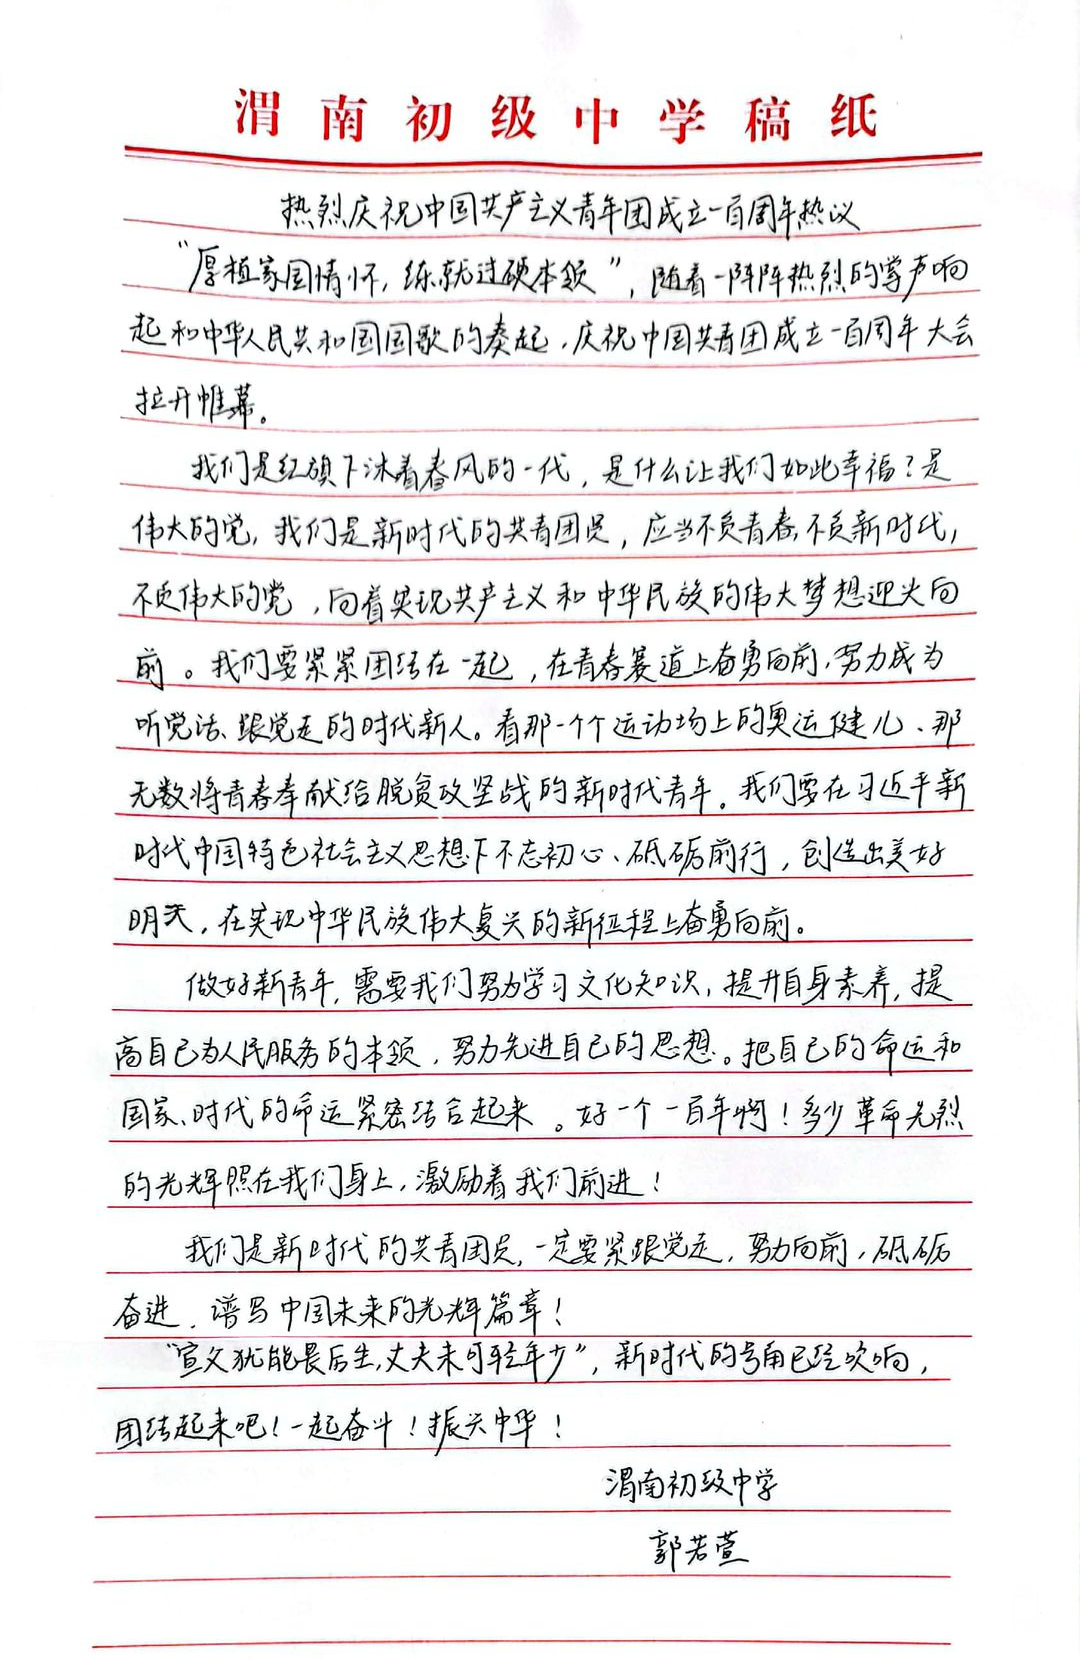 渭南初级中学稿纸
热烈庆祝中国共产主义青年团成立一百周年热议
“厚植家国情怀，练就过硬本领”，随着一阵阵热烈的掌声响
起和中华人民共和国国歌的奏起，庆祝中国共青团成立一百周年大会
拉开帷幕。
我们是红旗下沐着春风的一代，是什么让我们如此幸福？是
伟大的党，我们是新时代的共青团员，应当不负青春、不负新时代，
不负伟大的党，向着实现共产主义和中华民族的伟大梦想迎头向
前。我们要紧紧团结在一起，在青春赛道上奋勇向前，努力成为
听党话、跟党走的时代新人。看那一个个运动场上的奥运健儿、那
无数将青春奉献给脱贫攻坚战的新时代青年。我们要在习近平新
时代中国特色社会主义思想下不忘初心、砥砺前行，创造出美好
明天，在实现中华民族伟大复兴的新征程上奋勇向前。
做好新青年，需要我们努力学习文化知识，提升自身素养，提
高自己为人民服务的本领，努力先进自己的思想。把自己的命运和
国家、时代的命运紧密结合起来。好一个一百年啊！多少革命先烈
的光辉照在我们身上，激励着我们前进！
我们是新时代的共青团员，一定要紧跟党走，努力向前，砥砺
奋进，谱写中国未来的光辉篇章！
“宣父犹能畏后生，丈夫未可轻年少”，新时代的号角已经吹响，
团结起来吧！一起奋斗！振兴中华！
渭南初级中学
郭若萱